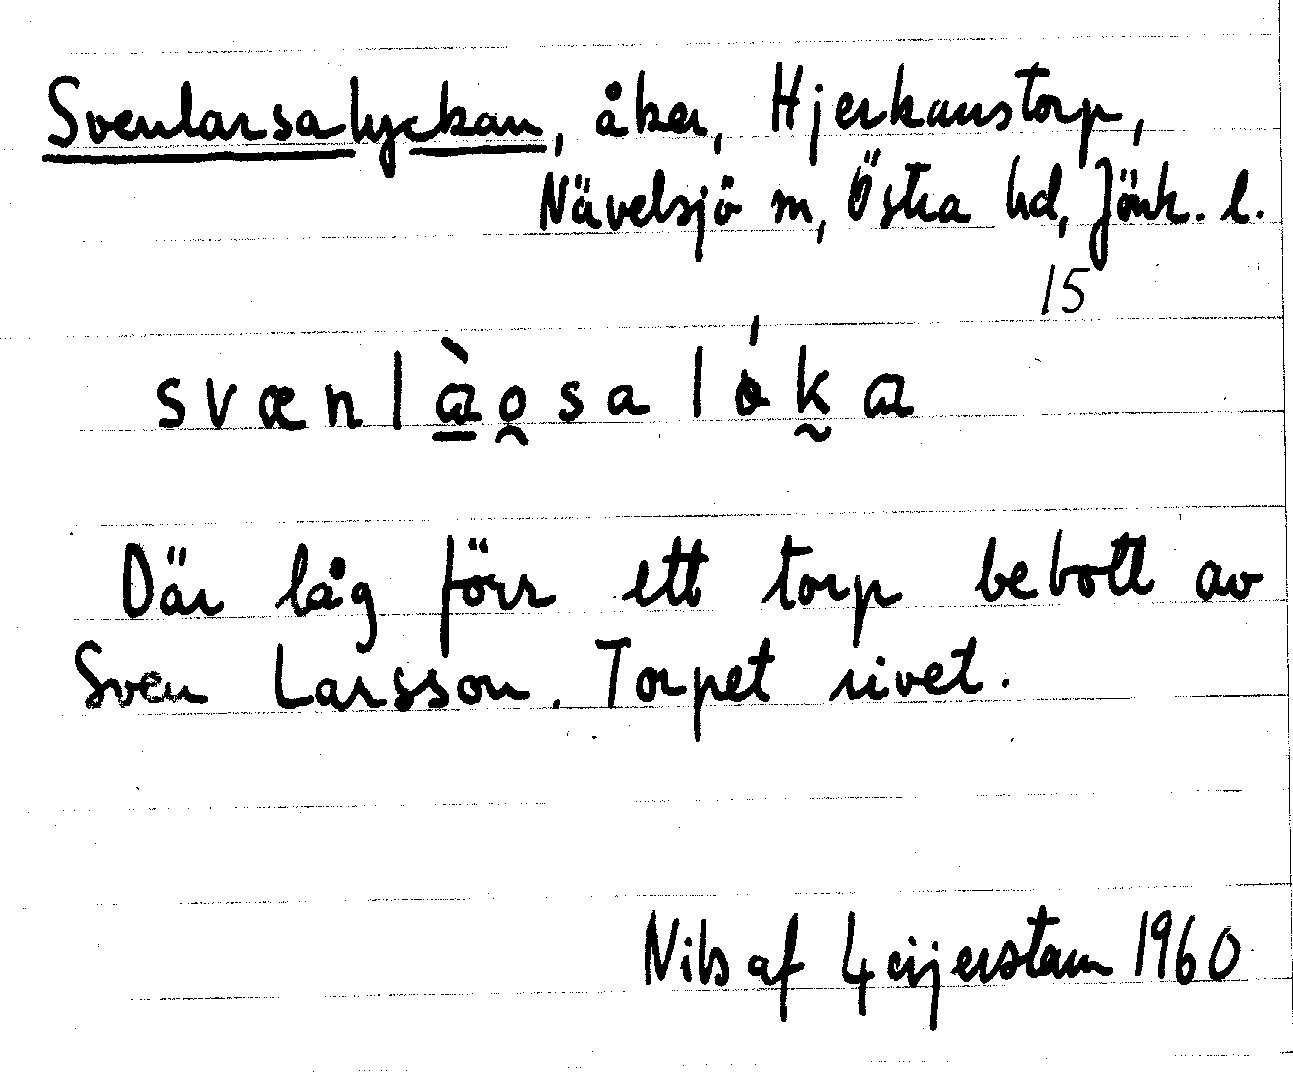 Svenlarsalyckan, åker, Hjerkanstorp,
Nävelsjö sn, Östra hd, Jönk. l.
15
svænlàosalóka
Där låg förr ett torp bebott av
Sven Larsson. Torpet rivet.
Nils af Geijerstam 1960